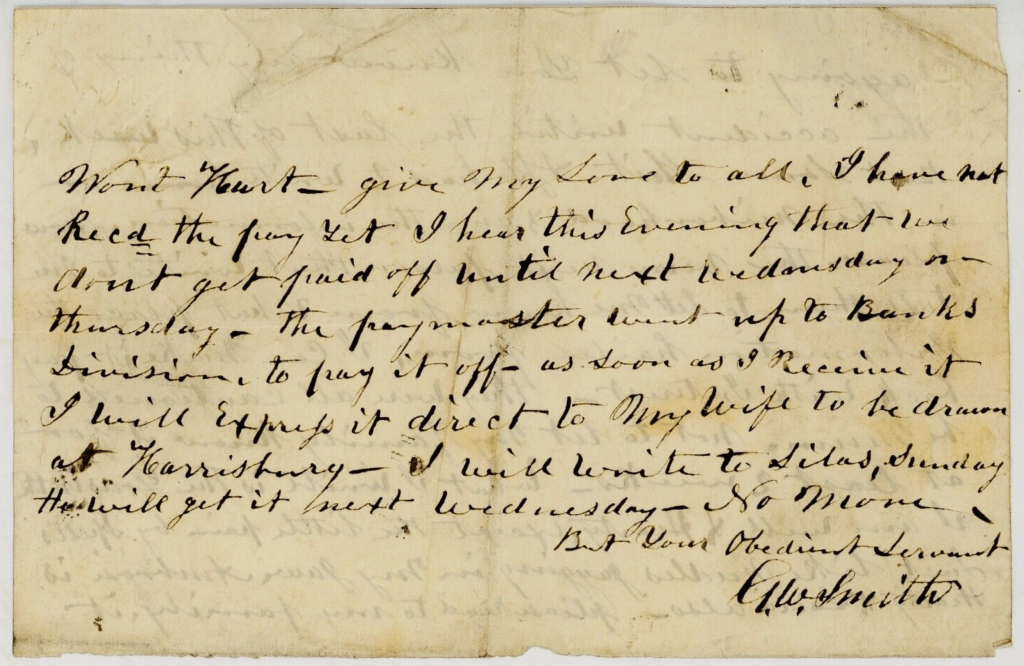 Wont Hurt – give My Love to all, I have not
Recd the pay Yet I hear this Evening that we
dont get paid off until next Wednesday or –
thursday – the paymaster went up to Banks
Division, to pay it off – as Soon as I Receive it
I will Express it direct to My Wife to be drawn
at Harrisburg – I will write to Silas, Sunday
He will get it next Wednesday – No More
But Your Obedient Servant
G.W. Smith